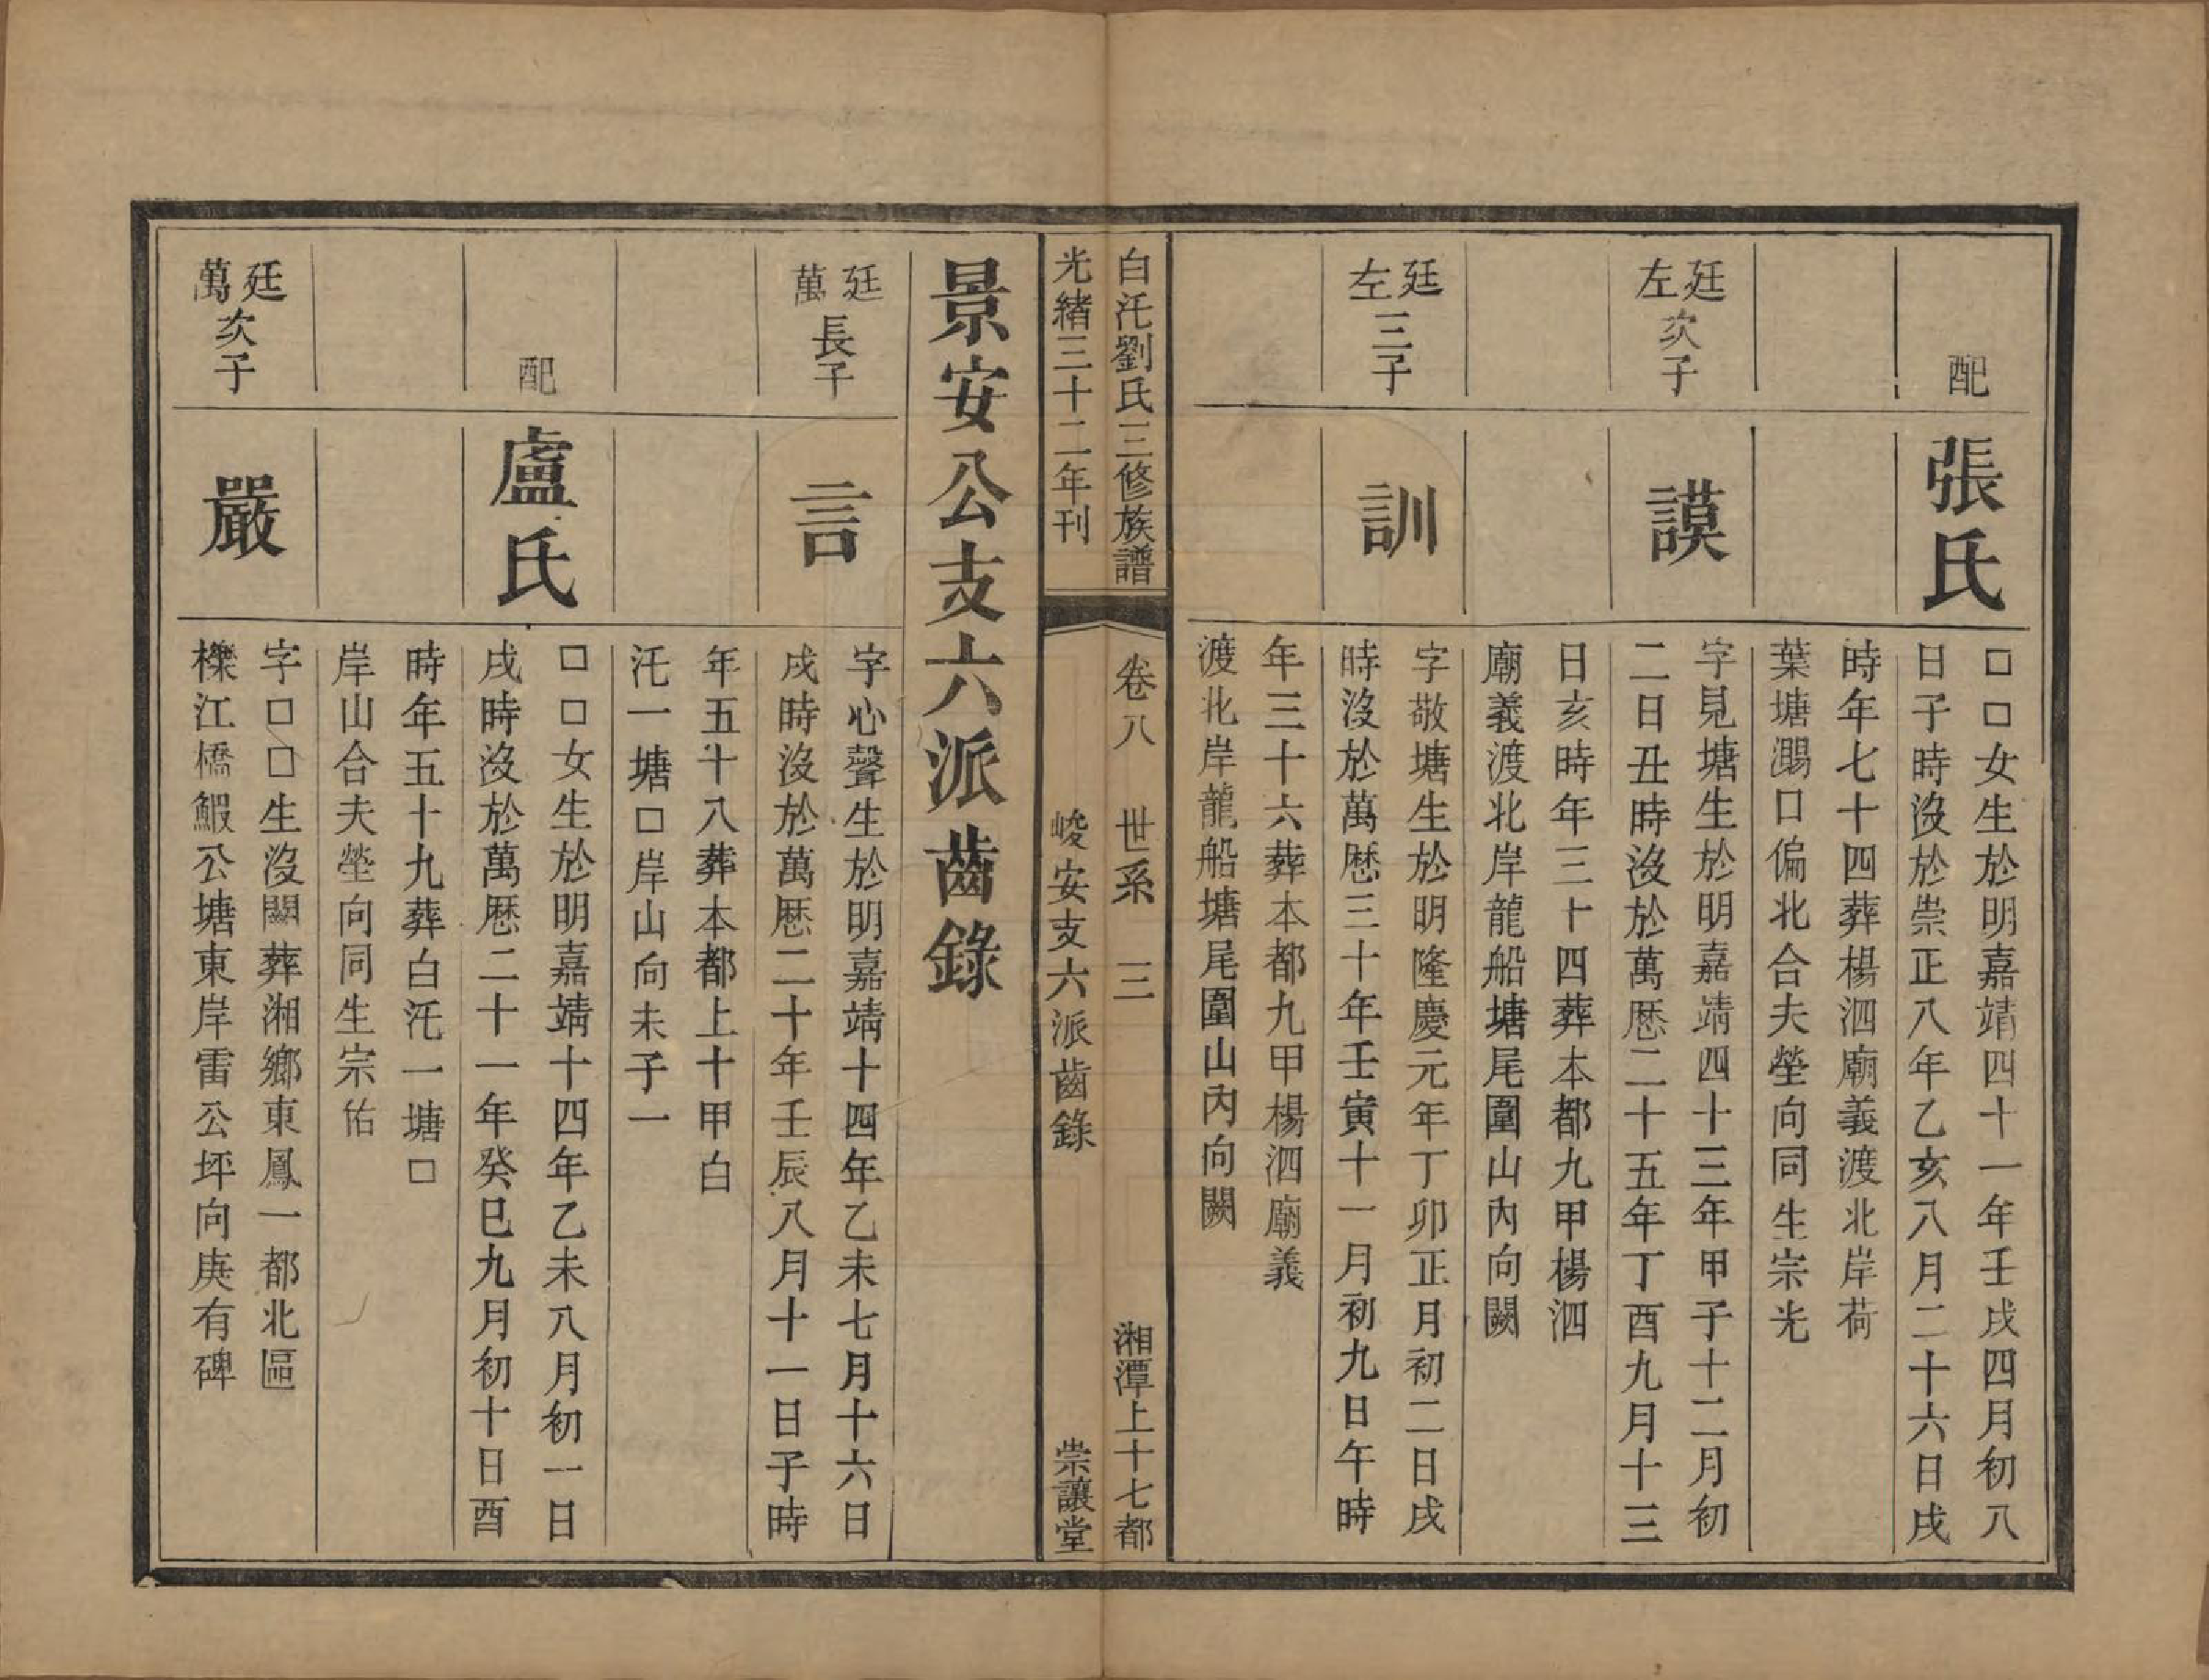 配
張氏
□□女生於明嘉靖四十一年壬戌四月初八
日子時沒於崇正八年乙亥八月二十六日戌
時年七十四葬楊泗廟義渡北岸荷
葉塘澗口偏北合夫塋向同生宗光
廷左次子
謨
字見塘生於明嘉靖四十三年甲子十二月初
二日丑時沒於萬厯二十五年丁酉九月十三
日亥時年三十四葬本都九甲楊泗
廟義渡北岸龍船塘尾圍山內向闕
廷左三子
訓
字敬塘生於明隆慶元年丁卯正月初二日戌
時沒於萬厯三十年壬寅十一月初九日午時
年三十六葬本都九甲楊泗廟義
渡北岸龍船塘尾圍山內向闕
白汑劉氏三修族譜
卷八 世系 三
湘潭上十七都
光緒三十二年刊
峻安支六派齒錄
崇讓堂
景安公支六派齒錄
廷萬長子
言
字心聲生於明嘉靖十四年乙未七月十六日
戌時沒於萬厯二十年壬辰八月十一日子時
年五十八葬本都上十甲白
汑一塘□岸山向未子一
配
盧氏
□□女生於明嘉靖十四年乙未八月初一日
戌時沒於萬厯二十一年癸巳九月初十日酉
時年五十九葬白汑一塘□
岸山合夫塋向同生宗佑
廷萬次子
嚴
字□□生沒闕葬湘鄉東鳳一都北區
櫟江橋鰕公塘東岸雷公坪向庚有碑